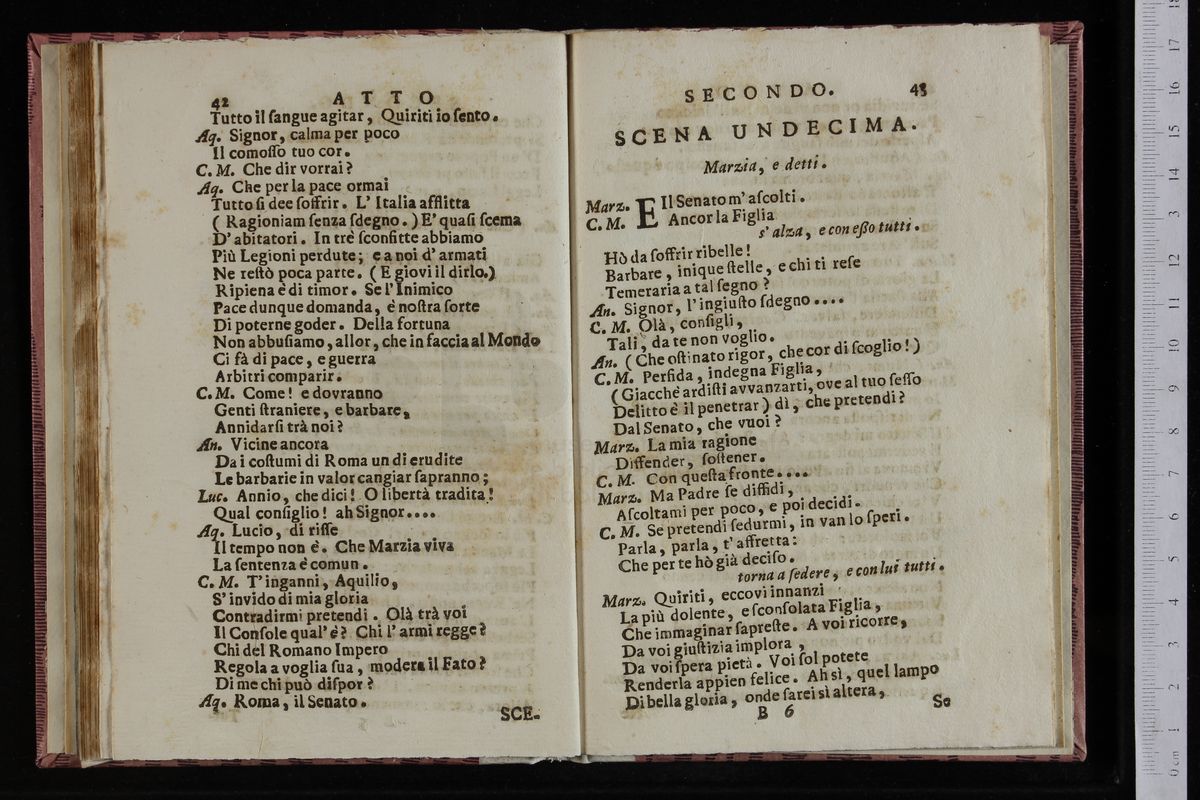 42 ATTO
Tutto il ſangue agitar, Quiriti io ſento.
Aq. Signor, calma per poco
Il comoſſo tuo cor.
C. M. Che dir vorrai?
Aq. Che per la pace ormai
Tutto ſi dee ſoffrir. L' Italia afflitta
( Ragioniam ſenza ſdegno. ) E' quaſi ſcema
D' abitatori. In trè ſconfitte abbiamo
Più Legioni perdute; e a noi d' armati
Ne reſtò poca parte. ( E giovi il dirlo.)
Ripiena è di timor. Se l' Inimico
Pace dunque domanda, è noſtra ſorte
Di poterne goder. Della fortuna
Non abbuſiamo, allor, che in faccia al Mondo
Ci fà di pace, e guerra
Arbitri comparir.
C. M. Come! e dovranno
Genti ſtraniere, e barbare,
Annidarſi trà noi?
An. Vicine ancora
Da i coſtumi di Roma un dì erudite
Le barbarie in valor cangiar ſapranno;
Luc. Annio, che dici! O libertà tradita!
Qual conſiglio! ah Signor....
Aq. Lucio, di riſſe
Il tempo non è. Che Marzia viva
La ſentenza è comun.
C. M. T' inganni, Aquilio,
S' invido di mia gloria
Contradirmi pretendi. Olà trà voi
Il Conſole qual' è? Chi l' armi regge?
Chi del Romano Impero
Regola a voglia ſua, modera il Fato?
Di me chi può diſpor?
Aq. Roma, il Senato.
SCE-
SECONDO. 43
SCENA UNDECIMA.
Marzia, e detti.
Marz. E Il Senato m' aſcolti.
C. M. Ancor la Figlia
s' alza, e con eſſo tutti.
Hò da ſoffrir ribelle!
Barbare, inique ſtelle, e chi ti reſe
Temeraria a tal ſegno?
An. Signor, l' ingiuſto ſdegno....
C. M. Olà, conſigli,
Tali, da te non voglio.
An. ( Che oſtinato rigor, che cor di ſcoglio! )
C. M. Perfida, indegna Figlia,
( Giacchè ardiſti avvanzarti, ove al tuo ſeſſo
Delitto è il penetrar ) dì, che pretendi?
Dal Senato, che vuoi?
Marz. La mia ragione
Diffender, ſoſtener.
C. M. Con queſta fronte....
Marz. Ma Padre ſe diffidi,
Aſcoltami per poco, e poi decidi.
C. M. Se pretendi ſedurmi, in van lo ſperi.
Parla, parla, t' affretta:
Che per te hò già deciſo.
torna a ſedere, e con lui tutti.
Marz. Quiriti, eccovi innanzi
La più dolente, e ſconſolata Figlia,
Che immaginar ſapreſte. A voi ricorre,
Da voi giuſtizia implora,
Da voi ſpera pietà. Voi ſol potete
Renderla appien felice. Ah sì, quel lampo
Di bella gloria, onde ſarei sì altera,
B 6 So